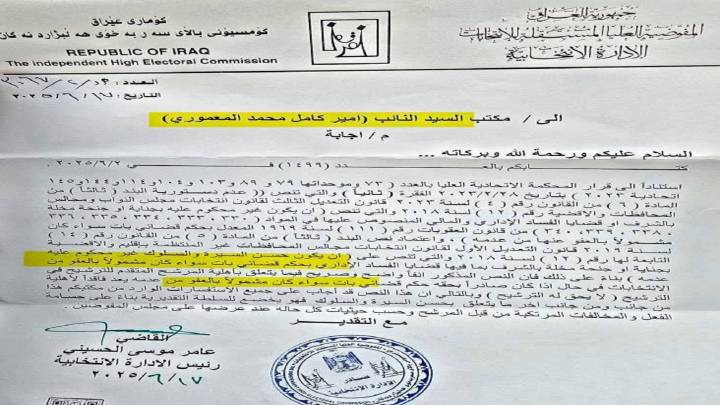 جمهورية العراق
المفوضية العليا المستقلة للانتخابات
الادارة الانتخابية
كۆماری عێراق
كۆمسیۆنی باڵای سه ربه خۆی هه ڵبژاردنه كان
REPUBLIC OF IRAQ
The Independent High Electoral Commission
العدد:
التاريخ: ٢٠٢٥/٦/١٧
الى / مكتب السيد النائب (امير كامل محمد المعموري)
م / اجابة
السلام عليكم ورحمة الله وبركاته ...
كتابكم بالعدد (١٤٩٩) في ٢٠٢٥/٦/٢.
استناداً الى قرار المحكمة الاتحادية العليا بالعدد (٧٣ وموحداتها ٧٩ و ٨٩ و ١٠٣ و ١٠٤ و ١١٢ و ١٤٤ و ١٤٥
اتحادية ٢٠٢٣) بتاريخ ٢٠٢٣/٢/٢٨ الفقرة (ثانياً) والتي تنص (( عدم دستورية البند (ثالثاً) من
المادة (٦) من القانون رقم (٤) لسنة ٢٠٢٣ قانون التعديل الثالث لقانون انتخابات مجلس النواب ومجالس
المحافظات والاقضية رقم (١٢) لسنة ٢٠١٨ والتي تنص ( ان يكون غير محكوم عليه بجناية او جنحة مخلة
بالشرف او قضايا الفساد الاداري والمالي المنصوص عليها في المواد
من قانون العقوبات رقم (١١١) لسنة ١٩٦٩ المعدل بحكم قضائي بات سواء كان
مشمولاً بالعفو عنها من عدمه) ، واعتماد نص البند (ثالثاً) من المادة (٥) من القانون رقم
لسنة ٢٠١٩ قانون التعديل الاول لقانون انتخابات مجالس المحافظات غير المنتظمة بإقليم والاقضية
التابعة لها رقم (١٢) لسنة ٢٠١٨ والتي تنص على ( ان يكون حسن السيرة والسلوك غير محكوم عليه
بجناية او جنحة مخلة بالشرف بما فيها قضايا الفساد الاداري بحكم قضائي بات سواء كان مشمولاً بالعفو من
عدمه ) بناءً على ذلك فان النص المذكور انفاً واضح وصريح فيما يتعلق بأهلية المرشح المتقدم للترشيح في
الانتخابات في حال اذا كان صادراً بحقه حكم قضائي بات سواء كان مشمولاً بالعفو من عدمه يعد فاقداً لأهلية
الترشيح ( لا يحق له الترشيح ) وبالتالي ان هذا جميع الاستفسارات الواردة من مكتبكم هذا
من جانب ومن جانب اخر ما يتعلق بحسن السيرة والسلوك فهو يخضع للسلطة التقديرية بناءً على جسامة
الفعل و المخالفات المرتكبة من قبل المرشح وحسب حيثيات كل حالة عند عرضها على مجلس المفوضين.
مع التقدير
القاضي
عامر موسى الحسيني
رئيس الادارة الانتخابية
٢٠٢٥/٦/١٧
صادر
الادارة الانتخابية